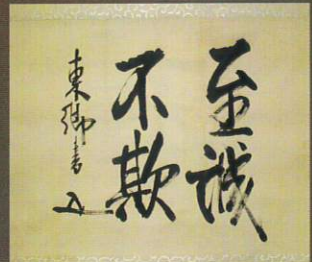 至誠
不欺
東郷書